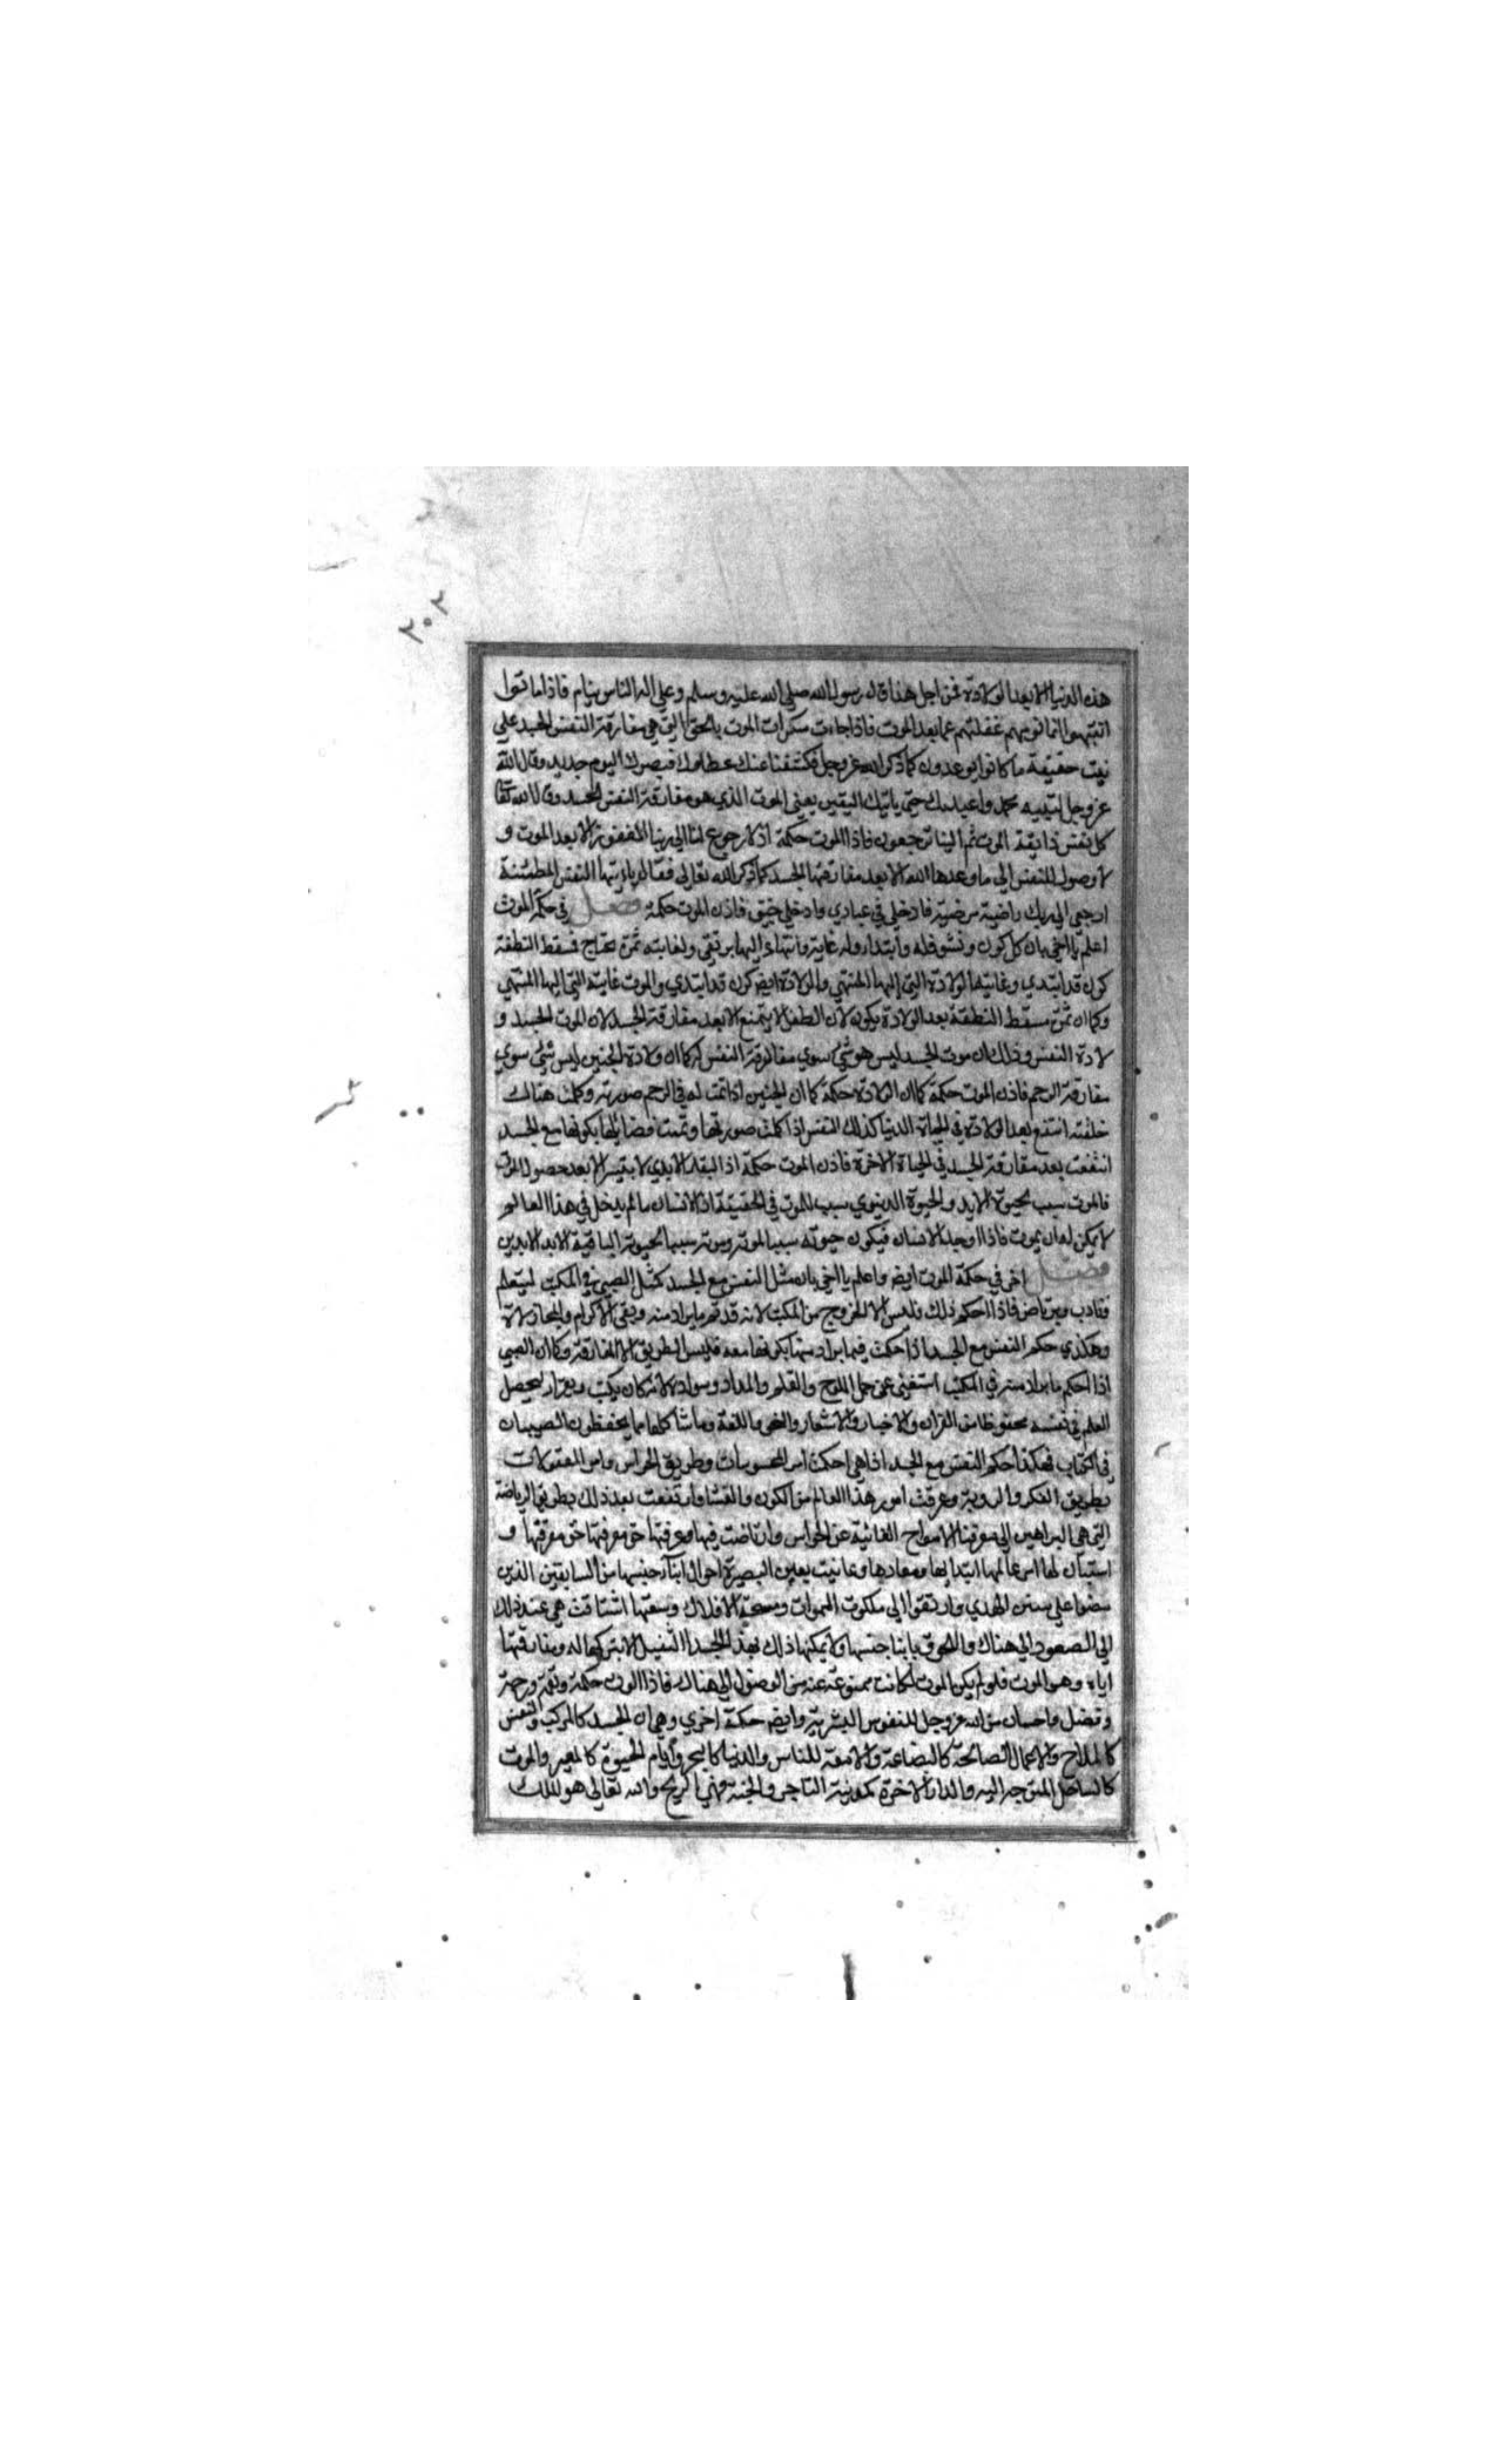 ٢٠٢
هذه الدنيا الا بعد الولادة فمن اجل هذا قال رسول الله صلي الله عليه وسلم وعلي اله الناس نيام فاذا ماتوا
انتبهوا انما نومهم غفلتهم عما بعد الموت فاذا جاءت سكرات الموت بالحق التي هي مفارقة النفس الجسد علي
حقيقة ما كانوا يوعدون كما ذكر الله عز وجل فكشفنا عنك غطاءك فبصرك اليوم حديد وقال الله
عز وجل لنبيه محمد واعبد ربك حتي ياتيك اليقين يعني الموت الذي هو مفارقة النفس الجسد وقال الله تعا
كل نفس ذايقة الموت ثم الينا ترجعون فاذا الموت حكمة اذ لا رجوع لنا الي ربنا الا بعد الموت و
لا وصول للنفس الي ما وعدها الله الا بعد مفارقتها الجسد كما ذكر الله تعالي فقال يا ايتها النفس المطمئنة
ارجعي الي ربك راضية مرضية فادخلي في عبادي وادخلي جنتي فاذن الموت حكمة فصل في حكمة الموت
اعلم يا اخي بان لكل كون ونشو فله وابتداء وله غاية وانتهاء اليها يرتقي ولغايته ثمرة تحتاج فسقط النطفة
كون قد ابتدي وغايتها الولادة التي اليها المنتهي والولادة ايضا كون قد ابتدي والموت غايته التي اليها المنتهي
وكما ان ثمرة مسقط النطفة بعد الولادة يكون لان الطفل لا يتمتع الا بعد مفارقة الجسد لان الموت الجسد و
لادة النفس وذلك ان موت الجسد ليس هو شئ سوي مفارقة النفس له كما ان ولادة الجنين ليس شئ سوي
مفارقة الرحم فاذن الموت حكمة كما ان الولادة حكمة كما ان الجنين اذا تمت له في الرحم صورته وكملت هنالك
خلقته انتفع بعد الولادة في الحياة الدنيا كذلك النفس اذا كملت صورتها وتمت فضايلها بكونها مع الجسد
انتفعت بعد مفارقة الجسد في الحياة الاخرة فاذن الموت حكمة اذ البقاء الابدي لا يتيسر الا بعد حصول الموت
فالموت سبب لحيوة الابد والحيوة الدنيوي سبب للموت في الحقيقة اذ الانسان ما لم يدخل في هذا العالم
لا يمكن له ان يموت فاذا وجد الانسان فيكون حيوته سببا لموته وموته سببا لحيوته الباقية الابد الابدين
فصل اخر في حكمة الموت ايضا واعلم يا اخي بان مثل النفس مع الجسد كمثل الصبي في المكتب ليتعلم
ويتادب ويرتاض فاذا احكم ذلك فليس الا الخروج من المكتب لانه قد تم ما يراد منه وبقي الاكرام والمجازاة
وهكذي حكم النفس مع الجسد اذا حكمت فيما يراد منها بكونها معه فليس الطريق الا المفارقة وكما ان الصبي
اذا احكم ما يراد منه في المكتب استغني عن حمل اللوح والقلم والمداد وسواد لانه كان يكتب ويقرا ليحصل
العلم في نفسه محفوظا من القران والاخبار والاشعار والنحو واللغة وما شاكلها مما يحفظون الصبيان
في الكتاب فهكذا حكم النفس مع الجسد اذا هي احكمت امر المحسوسات وطريق الحواس وامر المعقولات
بطريق الفكر والروية وعرفت امور هذا العالم من الكون والفساد وارتفعت بعد ذلك بطريق الرياضة
التي هي البراهين الي معرفة الارواح الغائبة عن الحواس وارتاضت فيها وعرفتها حق معرفتها حق معرفتها و
استبان لها امر عالمها ابتدايها ومعادها وعاينت بعين البصيرة احوال ابناء جنسها من السابقين الذين
مضوا علي سنن الهدي وارتقوا الي ملكوت السموات وسعة الافلاك وسعتها اشتاقت هي عند ذلك
الي الصعود الي هناك واللحوق بابناء جنسها ولا يمكنها ذلك بهذا الجسد الثقيل الا بتركها له ومفارقتها
اياه وهو الموت فلو لم يكن الموت لكانت ممنوعة عنه من الوصول الي هناك فاذا الموت حكمة ونعمة ورحمة
وفضل واحسان من الله عز وجل للنفوس البشرية وايضا حكمة اخري وهي ان الجسد كالمركب والنفس
كالملاح والاعمال الصالحة كالبضاعة والامتعة للناس والدنيا كالبحر وايام الحيوة كالمعبر والموت
كالساحل المتوجه اليه والدار الاخرة كمدينة التاجر والجنة هي الربح والله تعالي هو الملك